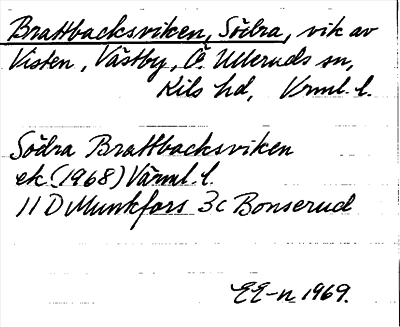 Brattbacksviken, Södra, vik av
Visten, Västby, Ö. Ulleruds sn,
Kils hd, Vrml. l.
Södra Brattbacksviken
ek. (1968) Värml. l.
11 D Munkfors 3c Bonserud
EE-n 1969.